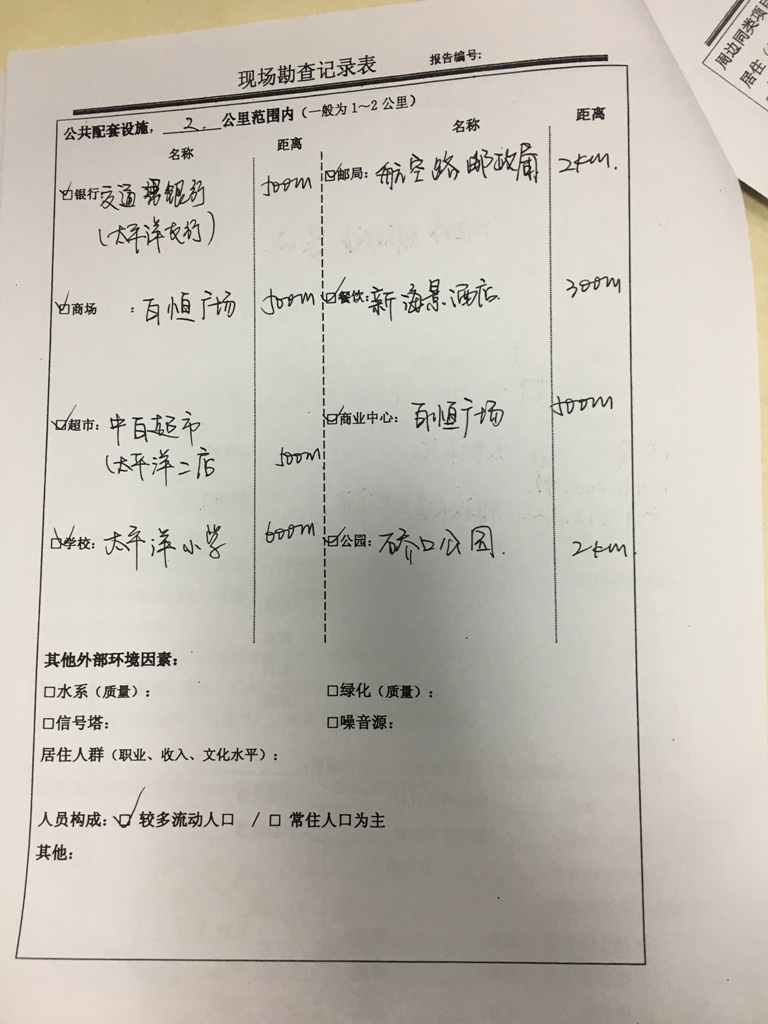 现场勘查记录表 报告编号:
公共配套设施, 2. 公里范围内(一般为1~2公里)
名称 距离 名称 距离
☑银行 交通银行 500m ☑邮局: 航空路邮政局 2km.
(太平洋支行)
☑商场 : 百恒广场 500m ☑餐饮: 新海景酒店. 300m
☑超市: 中百超市 ☑商业中心: 百恒广场 500m
(太平洋二店 500m
☑学校: 太平洋小学 600m ☑公园: 硚口公园. 2km.
其他外部环境因素:
□水系(质量): □绿化(质量):
□信号塔: □噪音源:
居住人群(职业、收入、文化水平):
人员构成: ☑ 较多流动人口 / □ 常住人口为主
其他:
周边同类项目
居住(